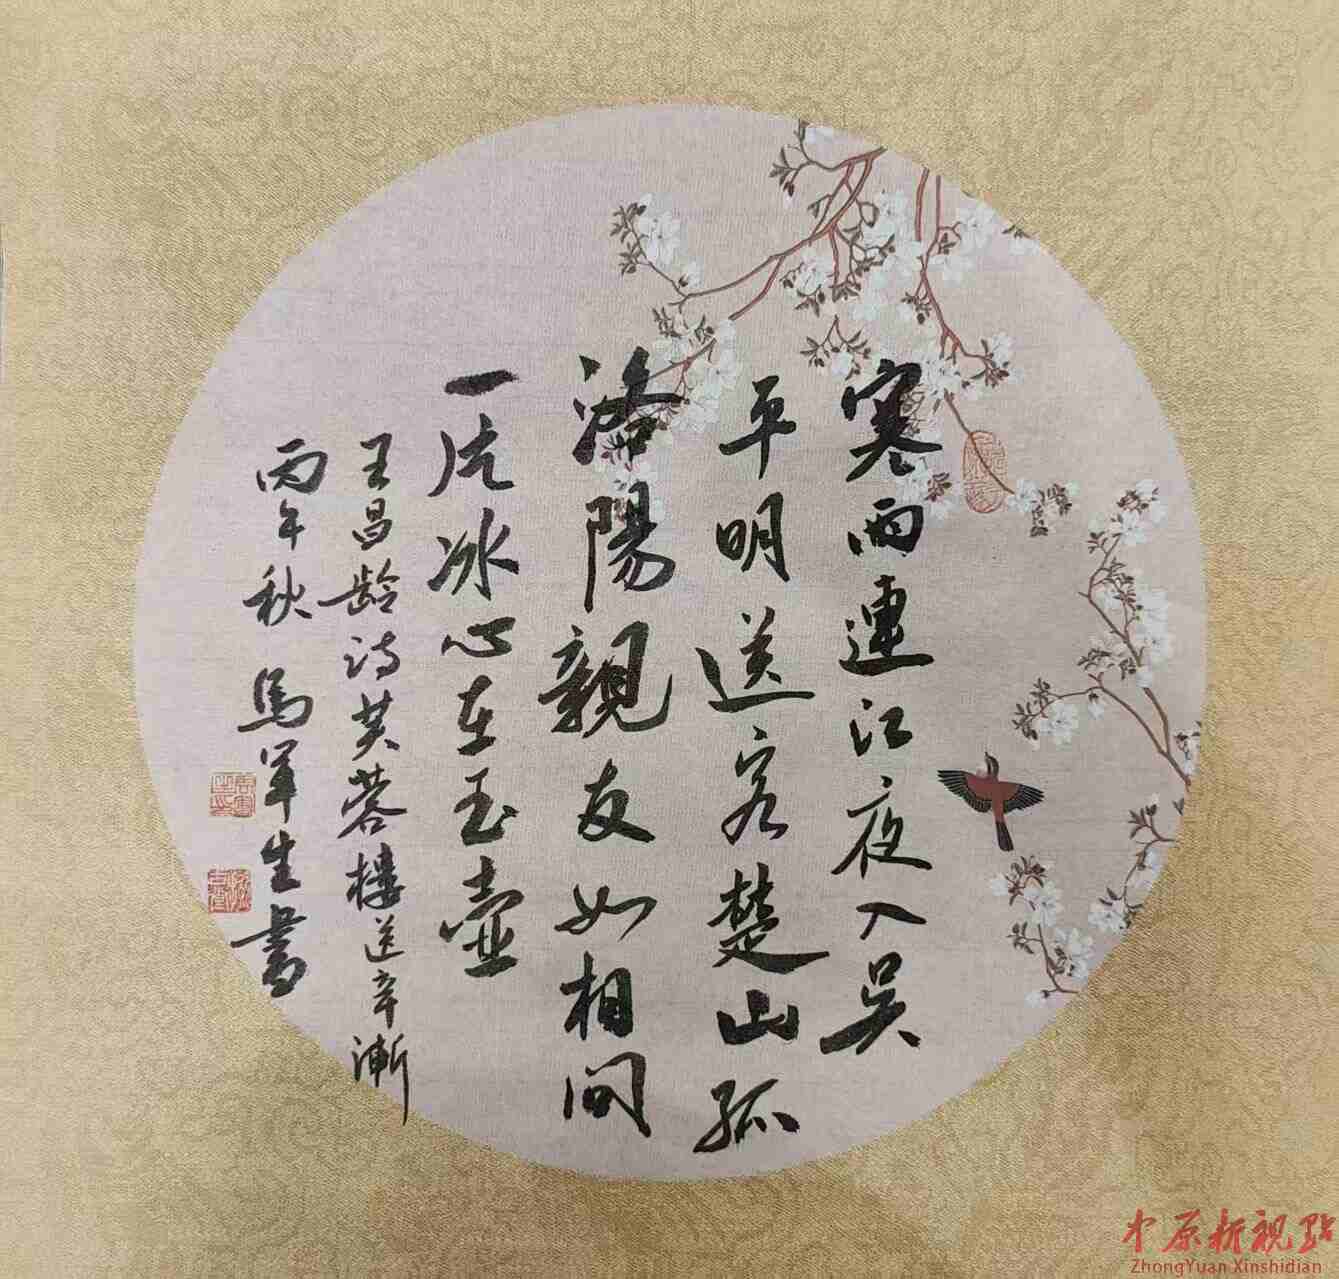 寒雨連江夜入吴
平明送客楚山孤
洛陽親友如相问
一片冰心在玉壺
王昌龄诗芙蓉樓送辛漸
丙午秋 馬军生書
中原新视點
ZhongYuan Xinshidian